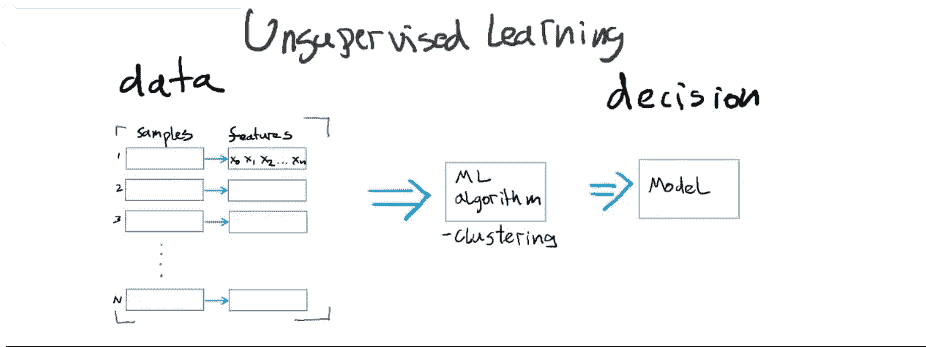 Unsupervised Learning
data
decision
samples features
1 x₀ x₁ x₂ ... xₙ
2
3
N
ML
algorithm
-clustering
Model